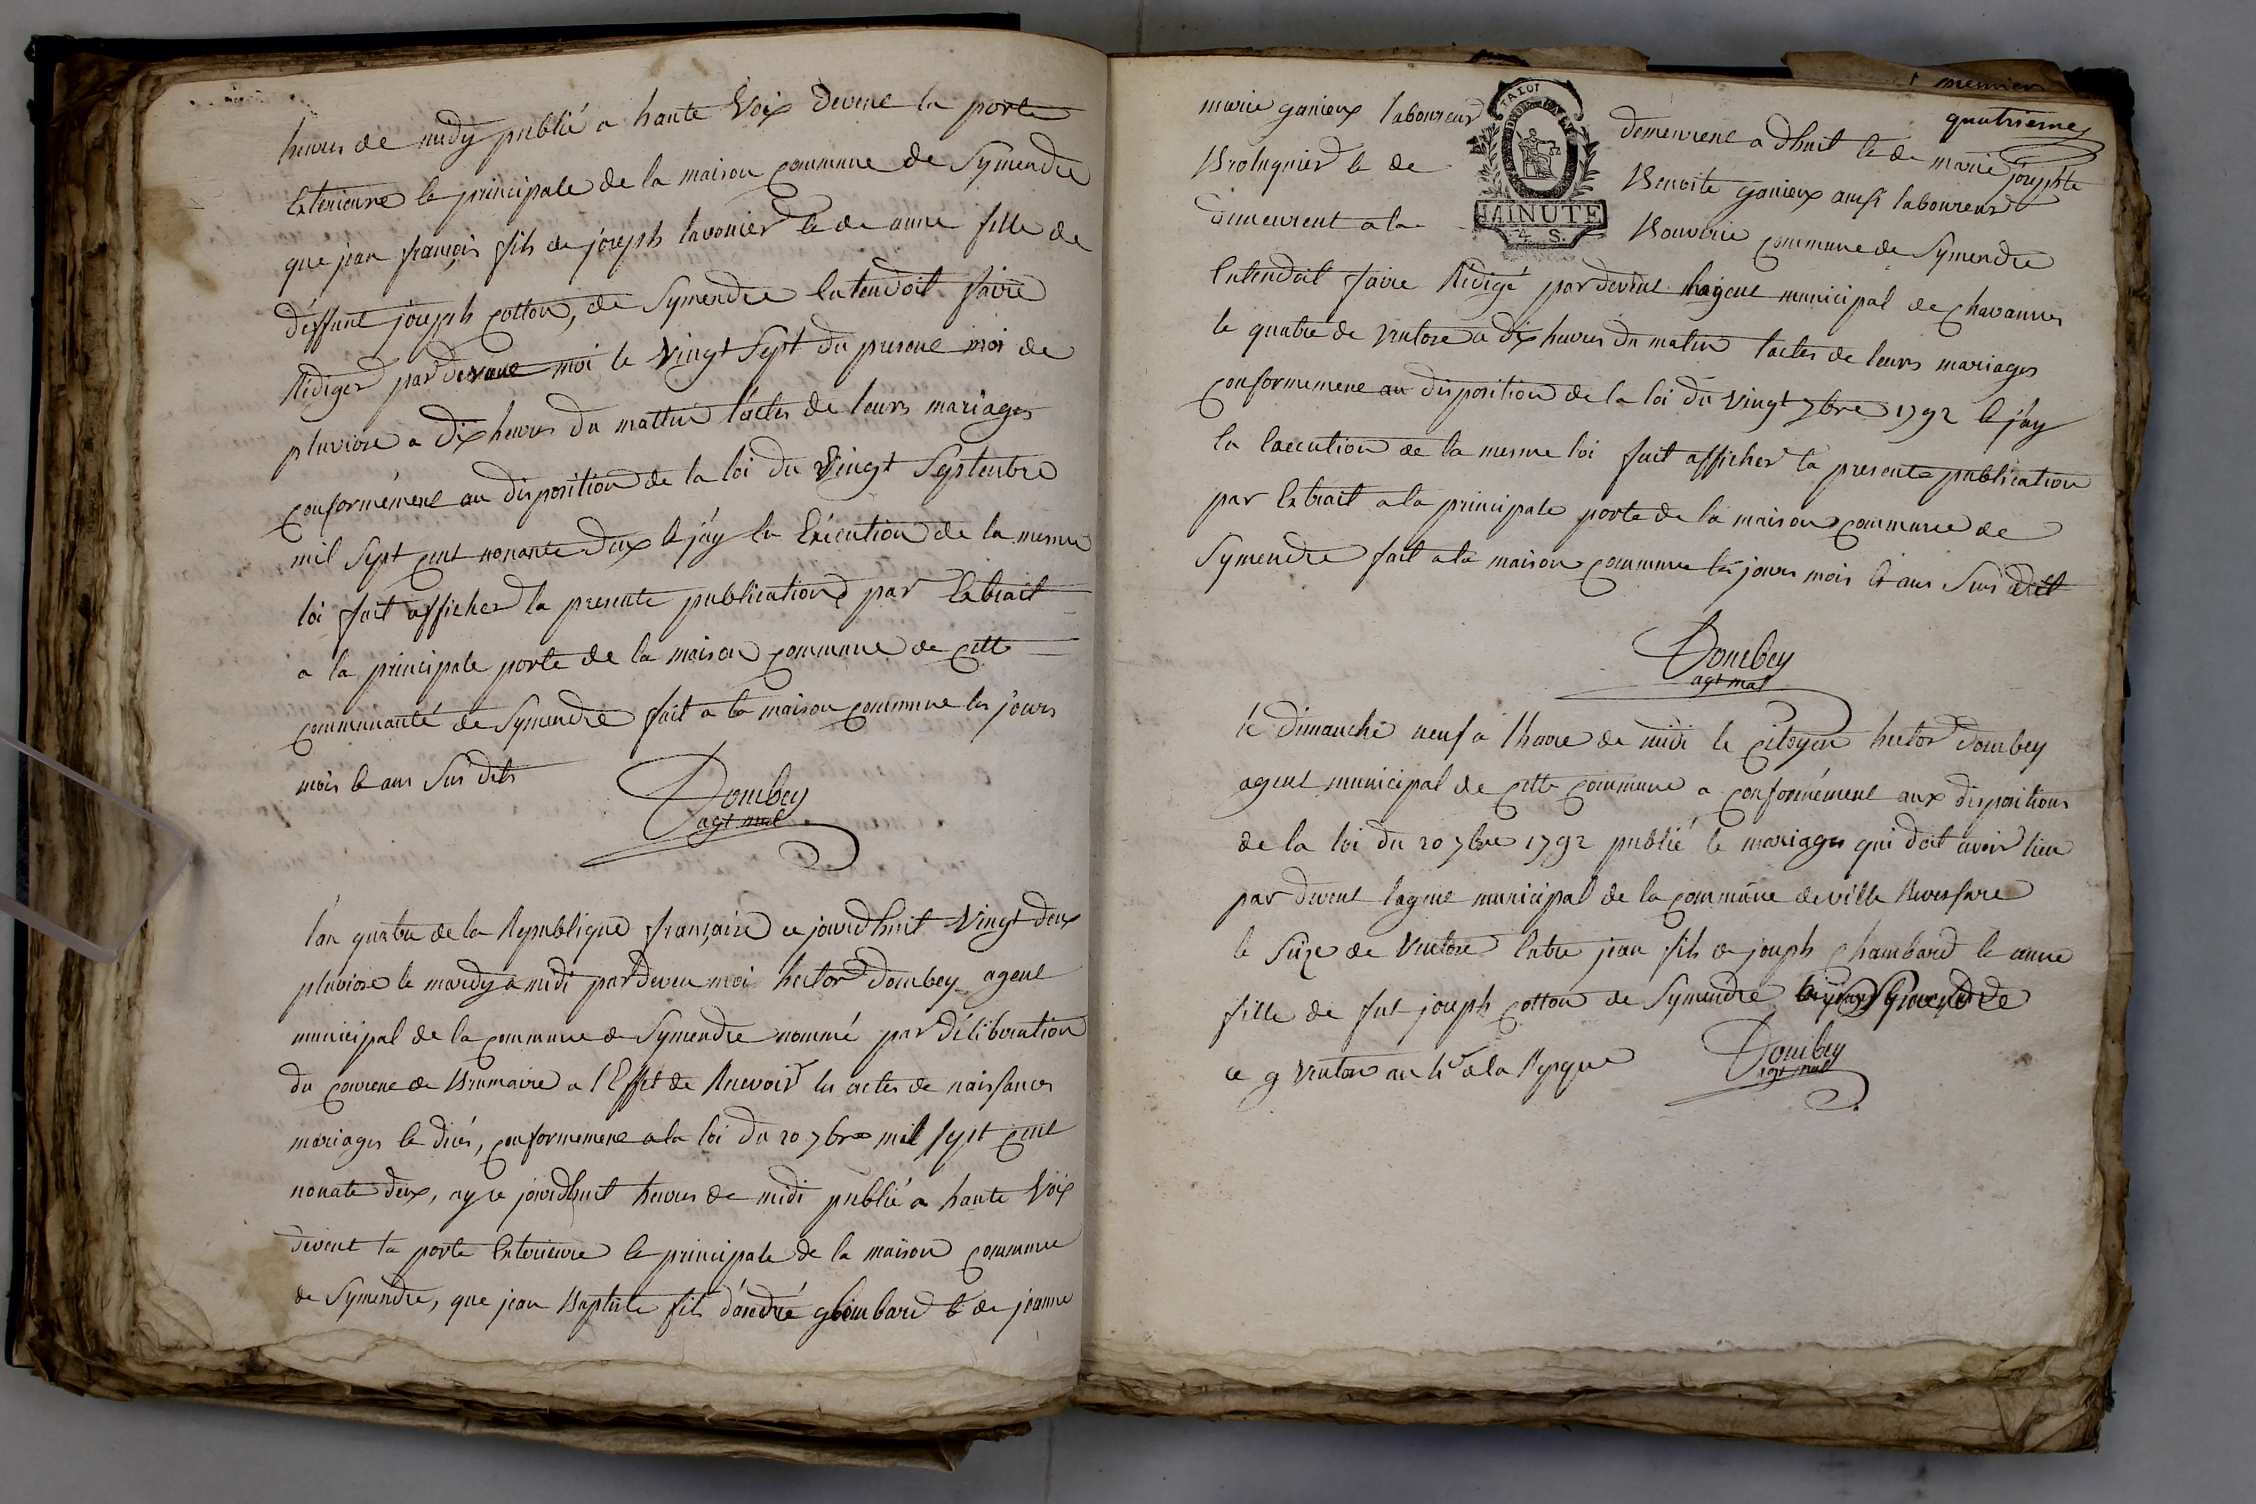 heures de midy publié a haute voix devene la porte
Exterieure le principale de la maison commune de Symendre
que jean françois fils de joseph lavonier le de anne fille de
deffunt joseph cotton, de Symendre Entendoit faire
Rédiger par devane moi le vingt Sept du presene moi de
pluviose a dix heures du mattin l'actes de leurs mariages
conformémene au disposition de la loi du vingt Septembre
mil Sept cent nonante deux le j'ay En Exécution de la mesme
loi fait afficher la presente publication par Extrait
a la principale porte de la maison commune de cette
communauté de Symendre fait a la maison commune les jours
mois le ans Sus dits
Dombey
agt mal
l'an quatre de la Republique française ce jourdhuit vingt deux
pluviose le mardy a midi par deven moi hector Dombey agene
municipal de la commune de Symendre nommé par déliberation
du de Brumaire a l'Effet de Recevoir les actes de naissances
mariages le dicés, conformemene a la loi du 20 7bre mil sept cent
nonate deux, ay ce jourdhuit heures de midi publié a haute voix
devene la porte Exterieure le principale de la maison commune
de Symendre, que jean Baptiste fils d'andré le de jeanne
quatrieme
marie ganieux laboureur demeurene a dhuit le de marie josephte
le de Benoite ganieux aussi laboureur
demeurent a la Bouverie commune de Symendre
MINUTE
4 S.
Entendoit faire Rédigé par devene lageul municipal de chavannes
le quatre de ventose a dix heures du matin lactes de leurs mariages
conformemene au disposition de la loi du vingt 7bre 1792 le j'ay
En Execution de la mesme loi fait afficher la presente publication
par Extrait a la principale porte de la maison commune de
Symendre fait a la maison commune les jours mois le ans Sus dit
Dombey
agt mal
le dimanche neuf a lheure de midi le citoyen hector Dombey
agene municipal de cette commune a conformémene aux dispositions
de la loi du 20 7bre 1792 publié le mariages qui doit avoir lieu
par devent lagene municipal de la commune de ville Reversure
le Seize de Ventose Entre jean fils de joseph Chambard le anne
fille de fut joseph cotton de Symendre Symendre
ce 9 Ventose an 4e de la Repque
Dombey
agt mal